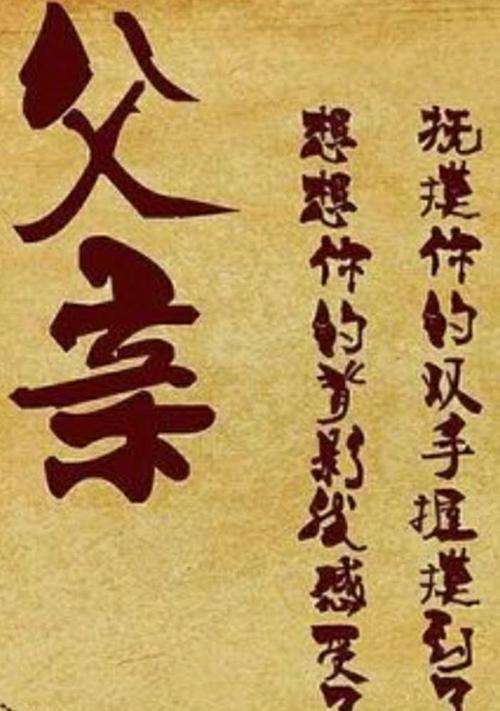 父亲
想想你的背影我感受了
抚摸你的双手摸到了